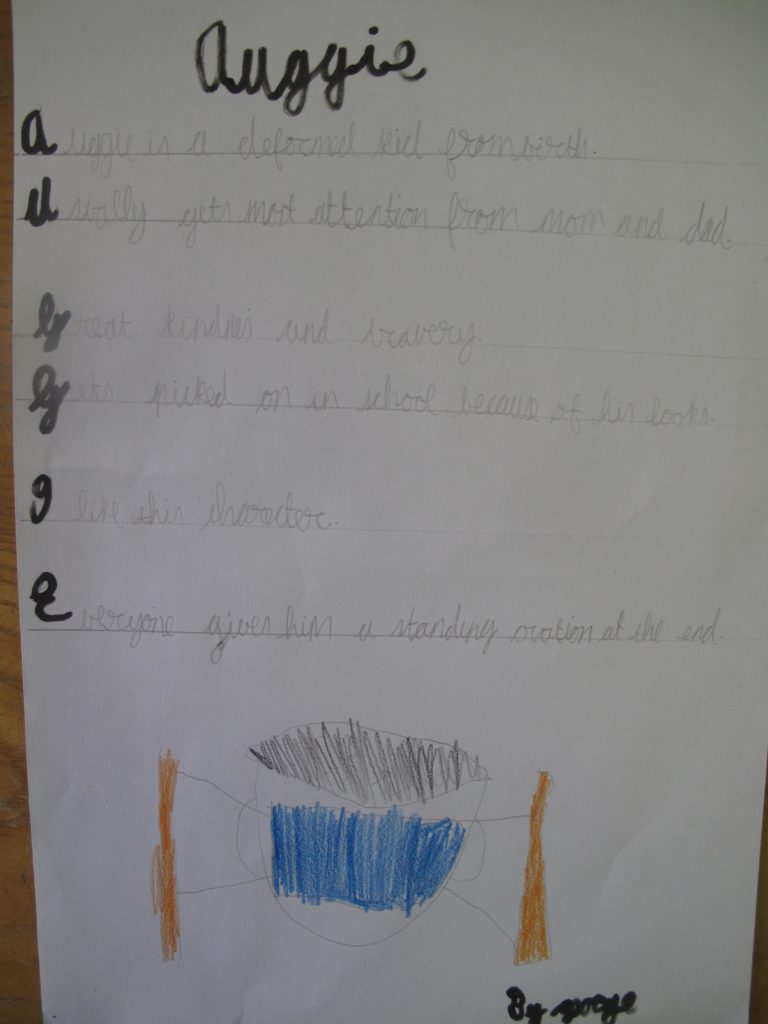 Auggie
Auggie is a deformed kid from birth.
Usually gets most attention from mom and dad.
Great kindnes and bravery.
Gets picked on in school because of his looks.
I like this character.
Everyone gives him a standing ovation at the end.
By george